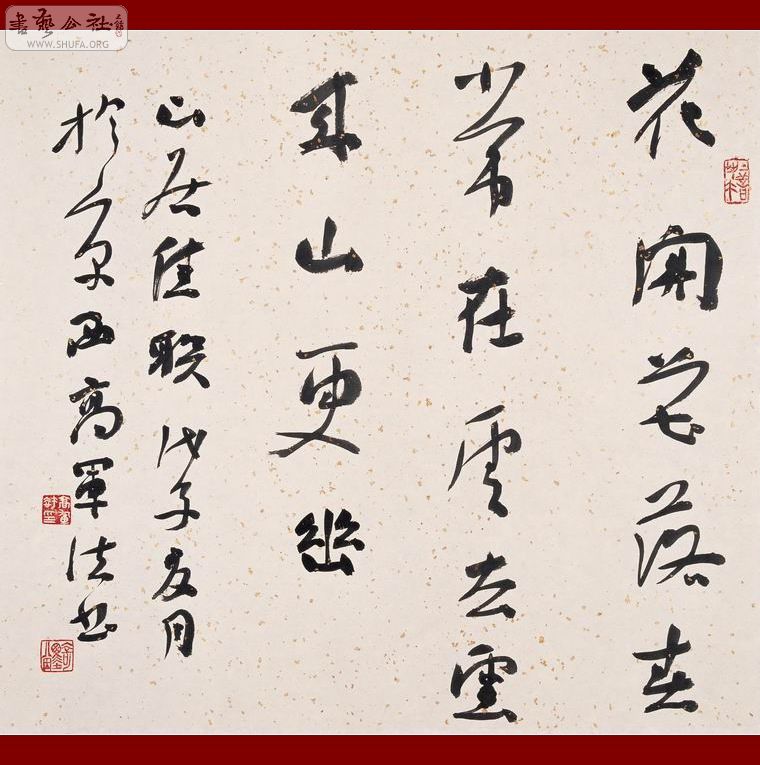 書藝公社
WWW.SHUFA.ORG
花開花落春
常在雲去雲
来山更幽
山居佳联 戊子夏月
於京西高軍法书